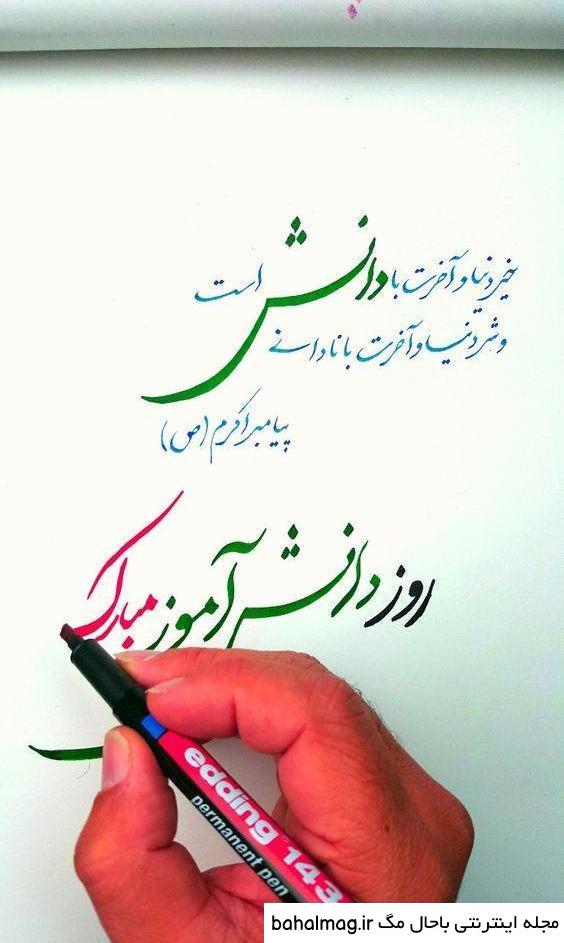 خیر دنیا و آخرت با دانش است
و شر دنیا و آخرت با نادانی
پیامبر اکرم (ص)
روز دانش آموز مبارک
edding 143
permanent pen
مجله اینترنتی باحال مگ bahalmag.ir